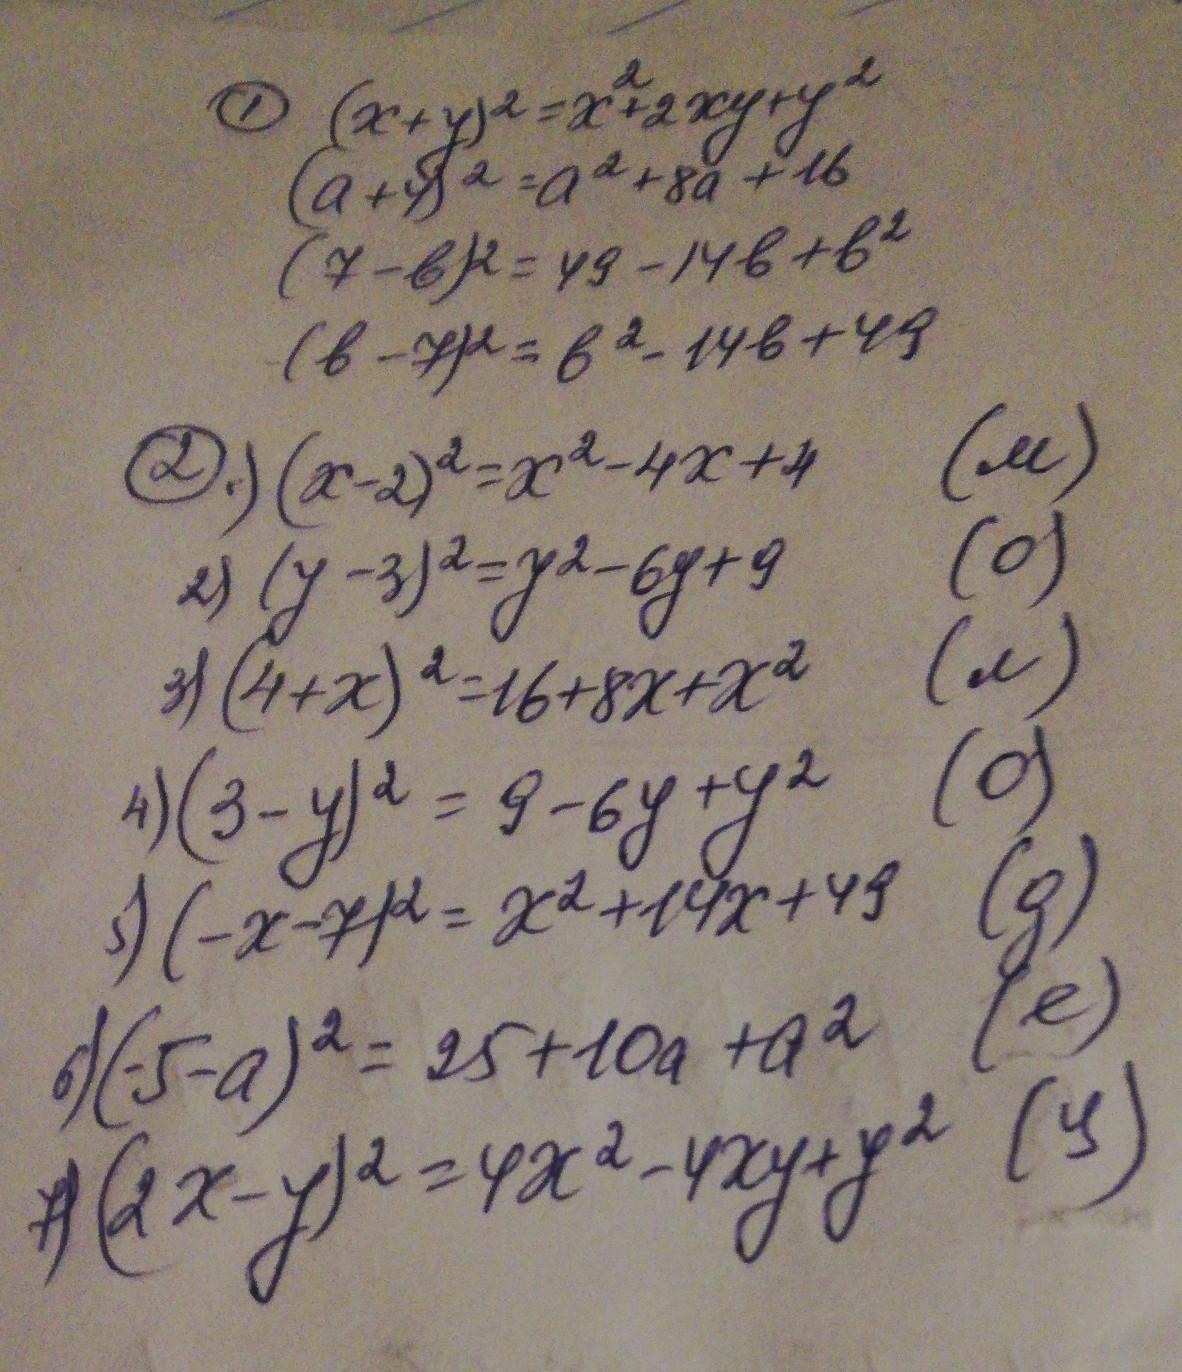 ① (x+y)²=x²+2xy+y²
(a+4)²=a²+8a+16
(7-в)²=49-14в+в²
(в-7)²=в²-14в+49
② 1) (x-2)²=x²-4x+4 (м)
2) (y-3)²=y²-6y+9 (О)
3) (4+x)²=16+8x+x² (л)
4) (3-y)²=9-6y+y² (О)
5) (-x-7)²=x²+14x+49 (g)
6) (-5-a)²=25+10a+a² (е)
7) (2x-y)²=4x²-4xy+y² (ц)